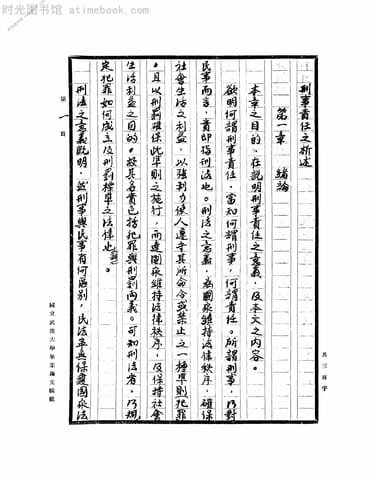 时光图书馆 atimebook.com
刑事責任之析述
第一章 緒論
本章之目的，在說明刑事責任之意義，及本文之內容。
欲明何謂刑事責任，當知何謂刑事，何謂責任。所謂刑事，乃對
民事而言，責即指刑法也。刑法之意義，為國家維持法律秩序，確保
社會生活之利益，以強制力使人遵守其所命令或禁止之一種準則犯罪
，且以刑罰確保此準則之施行，而達國家維持法律秩序，及保持社會
生活利益之目的。故其名實包括犯罪與刑罰兩義。可知刑法者，乃規
定犯罪如何成立及刑罰標準之法律也
刑法之意義既明，然刑事與民事有何區別，民法亦為保護國家法
第一頁
國立武漢大學畢業論文稿紙
共三百字